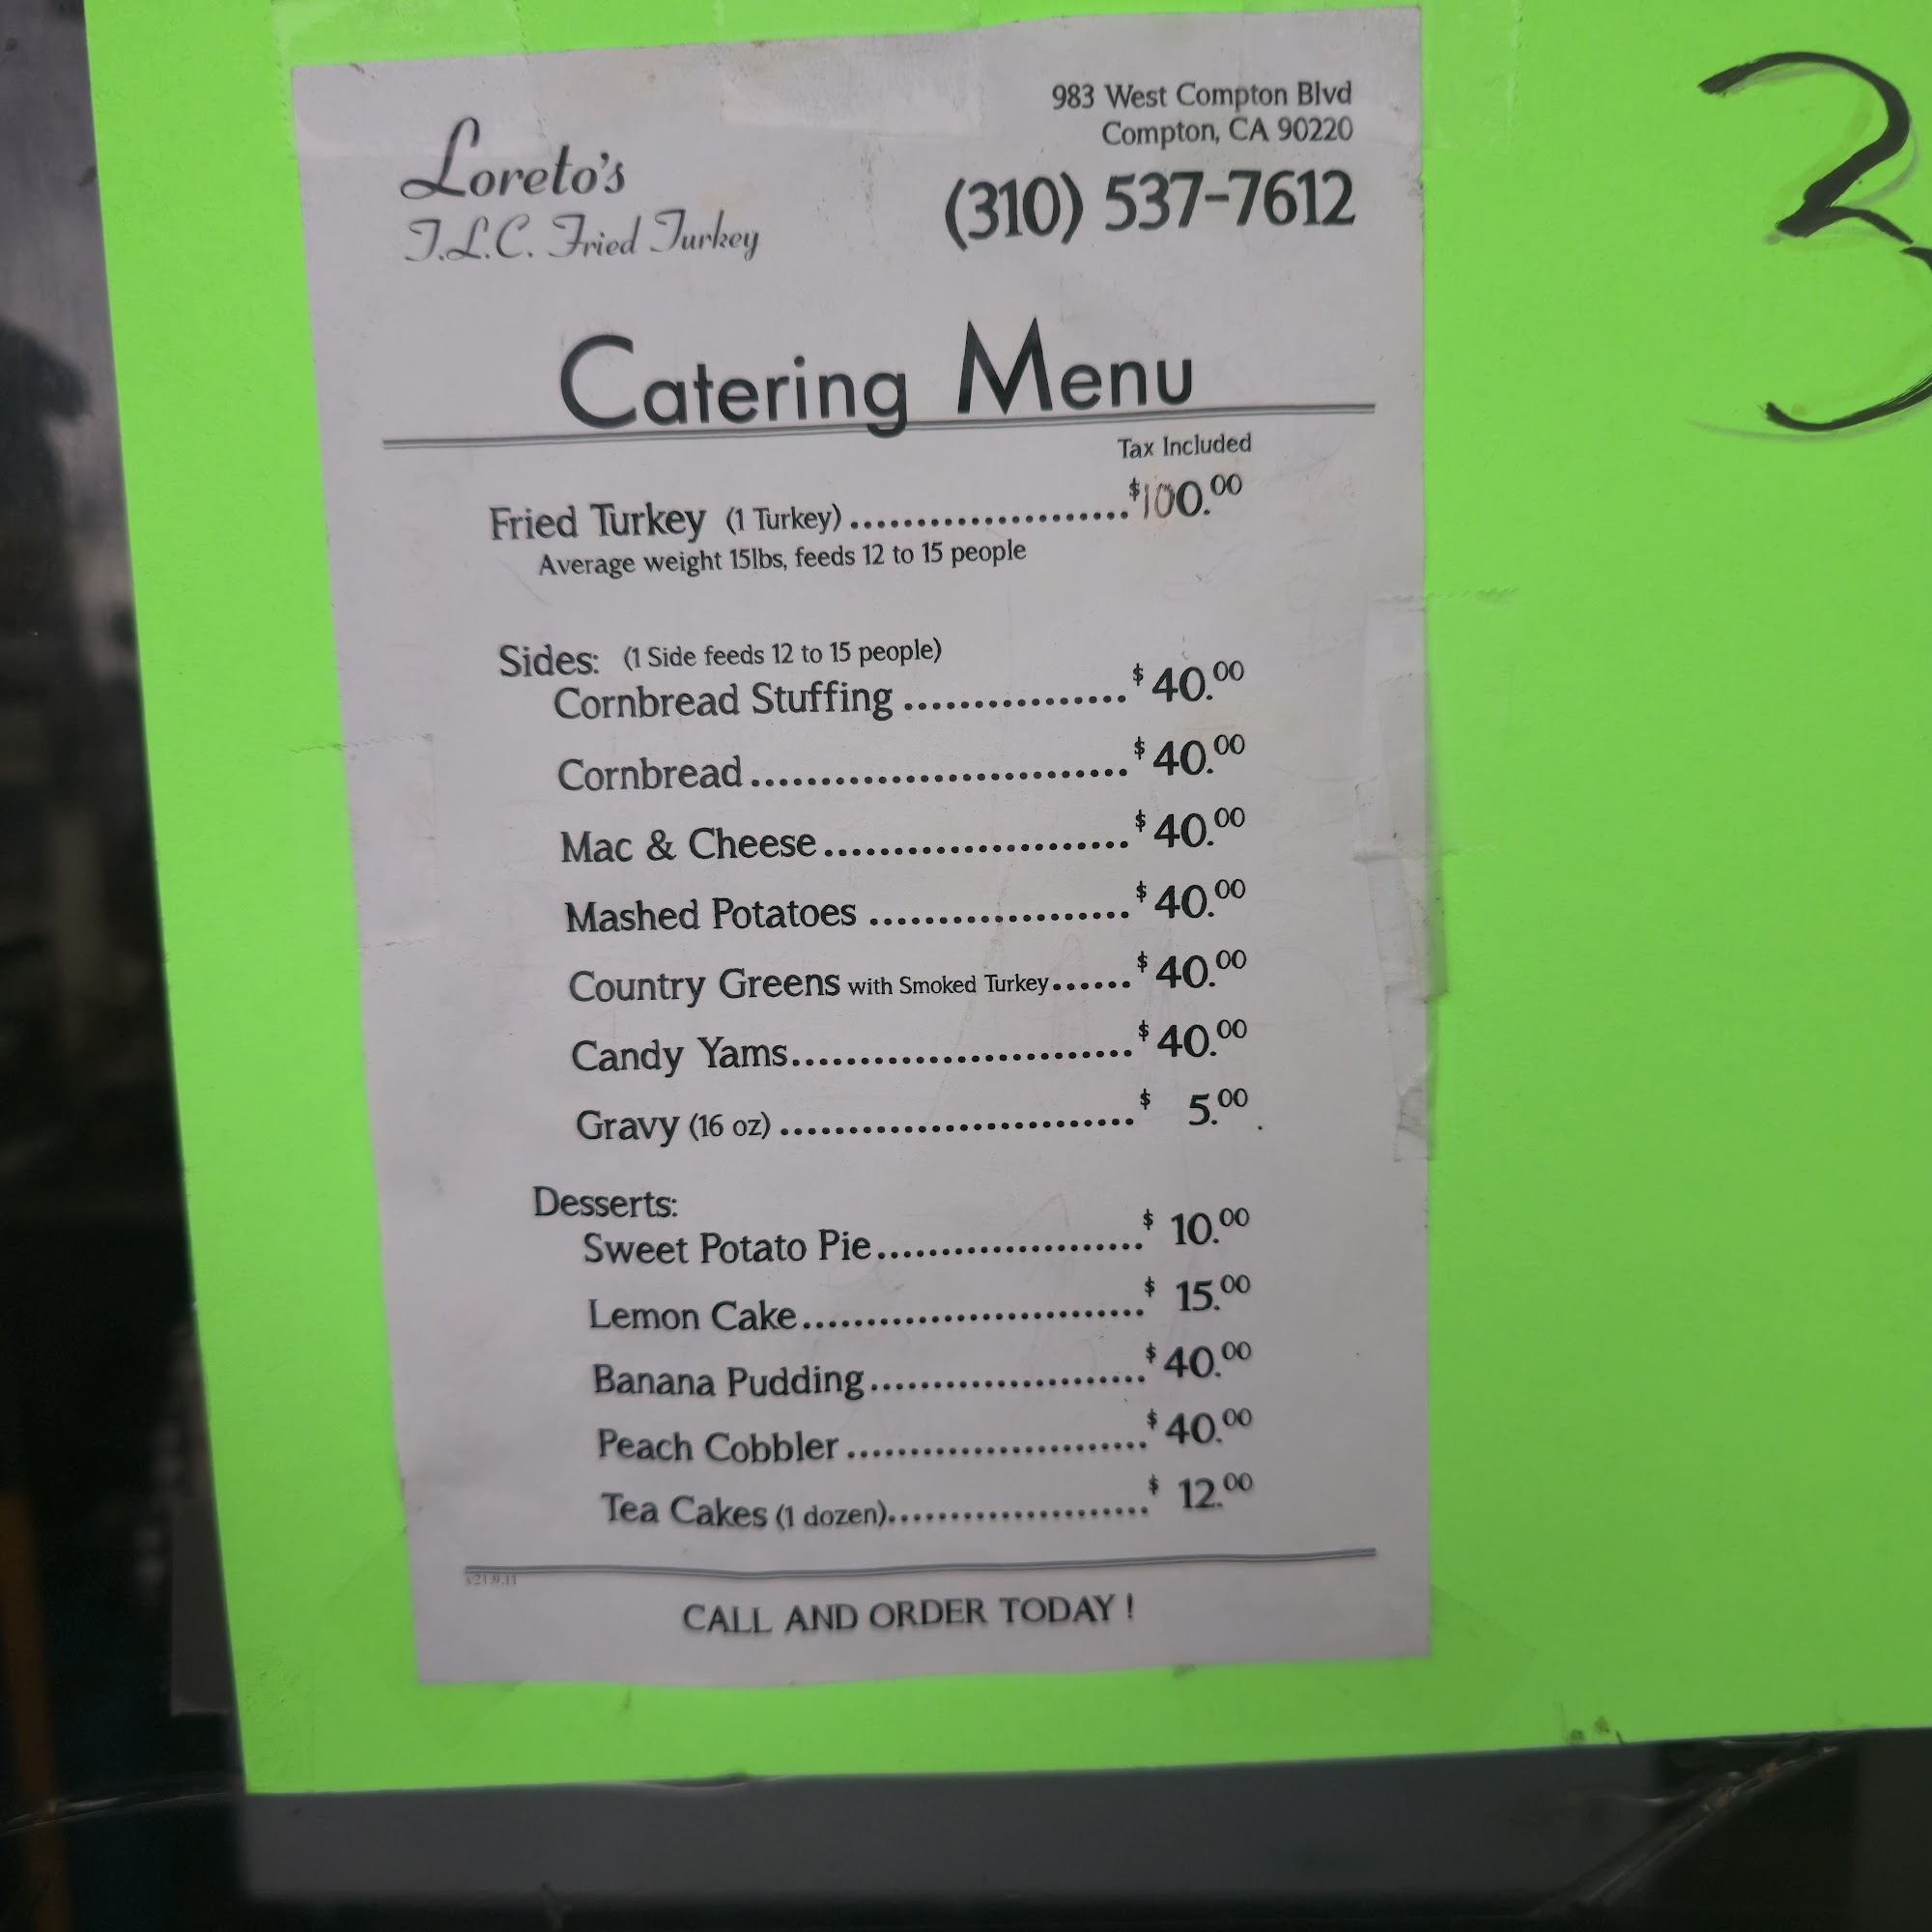 Loreto's
T.L.C. Fried Turkey
983 West Compton Blvd
Compton, CA 90220
(310) 537-7612
Catering Menu
Tax Included
Fried Turkey (1 Turkey)......................$100.00
Average weight 15lbs, feeds 12 to 15 people
Sides: (1 Side feeds 12 to 15 people)
Cornbread Stuffing ................$ 40.00
Cornbread............................$ 40.00
Mac & Cheese.......................$ 40.00
Mashed Potatoes ...................$ 40.00
Country Greens with Smoked Turkey......$ 40.00
Candy Yams.........................$ 40.00
Gravy (16 oz) ..........................$ 5.00
Desserts:
Sweet Potato Pie.....................$ 10.00
Lemon Cake...........................$ 15.00
Banana Pudding......................$ 40.00
Peach Cobbler........................$ 40.00
Tea Cakes (1 dozen).....................$ 12.00
CALL AND ORDER TODAY !